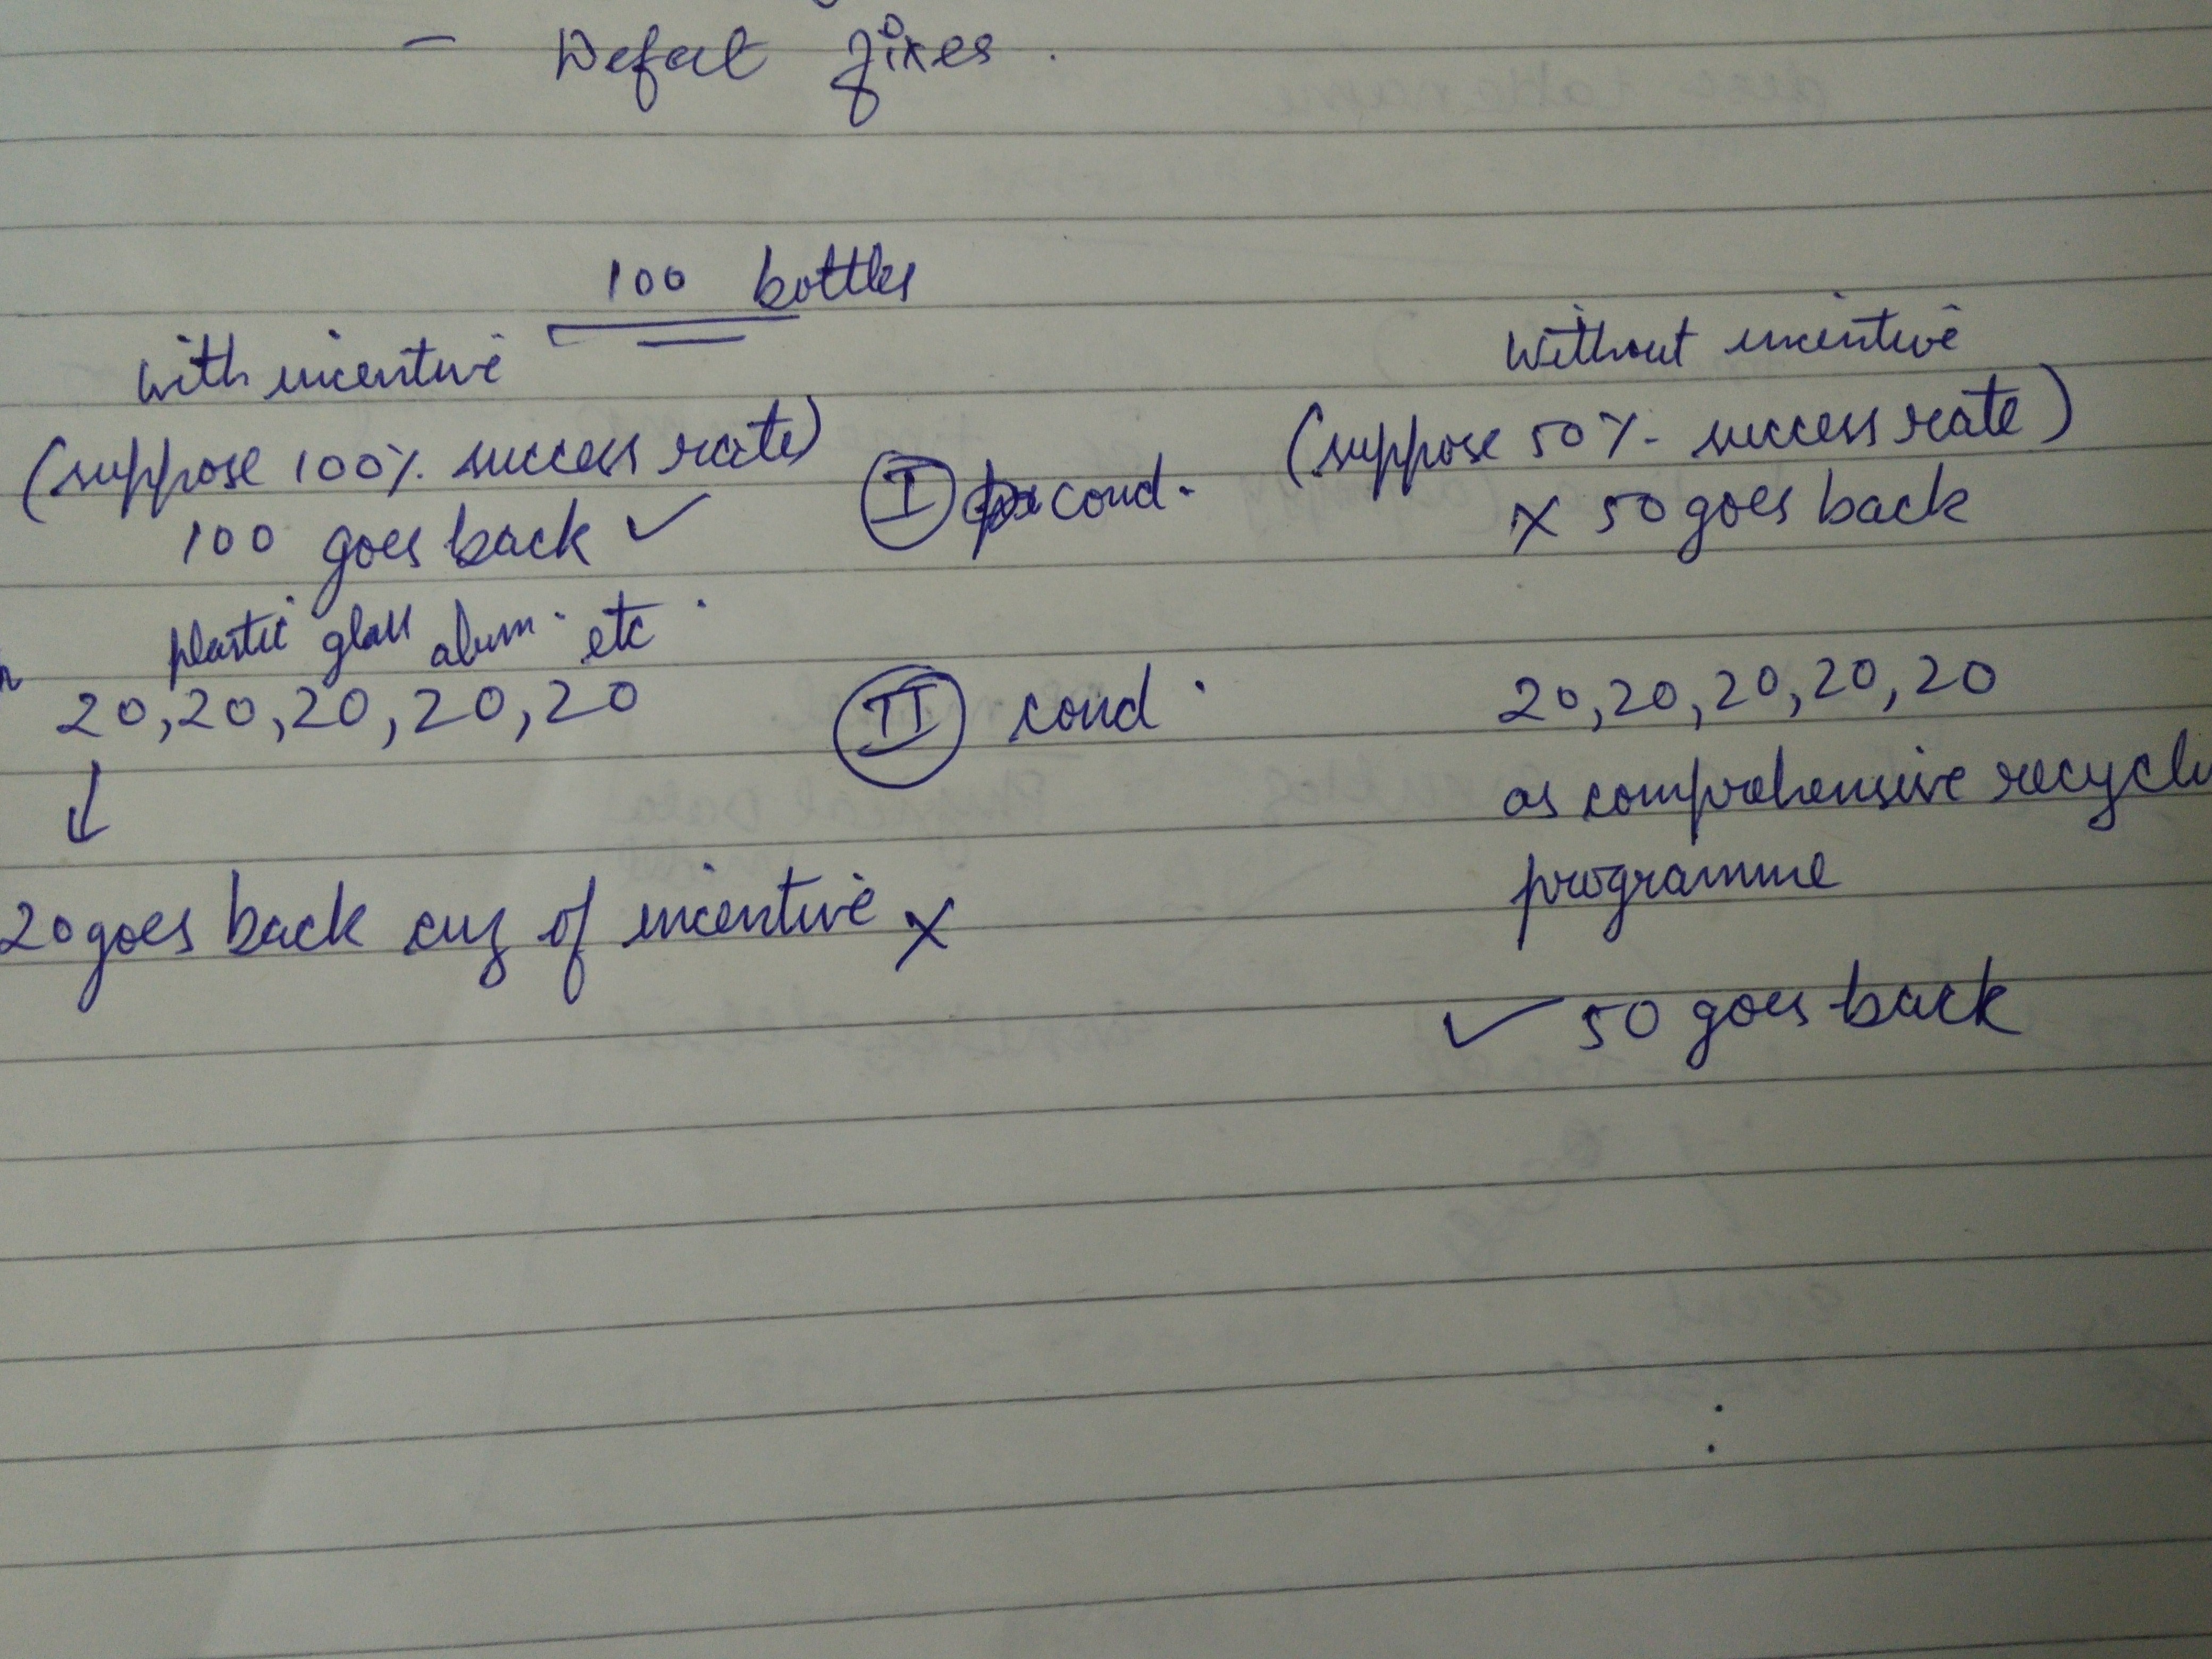 - Defect fixes.
100 bottles
with incentive
(suppose 100% success rate)
100 goes back ✓
plastic glass alum. etc.
20, 20, 20, 20, 20
↓
20 goes back cuz of incentive ✗
I cond.
II cond.
Without incentive
(suppose 50% success rate)
✗ 50 goes back
20, 20, 20, 20, 20
as comprehensive recycli
programme
✓ 50 goes back